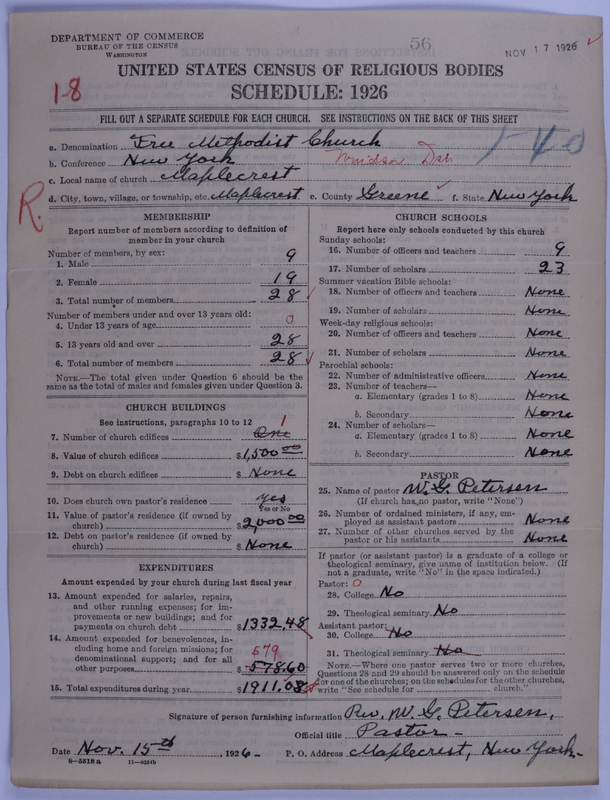 DEPARTMENT OF COMMERCE
BUREAU OF THE CENSUS
WASHINGTON
56
NOV 17 1926
1-8
UNITED STATES CENSUS OF RELIGIOUS BODIES
SCHEDULE: 1926
FILL OUT A SEPARATE SCHEDULE FOR EACH CHURCH. SEE INSTRUCTIONS ON THE BACK OF THIS SHEET
a. Denomination Free Methodist Church
b. Conference New York
1-40
c. Local name of church Maplecrest
R.
d. City, town, village, or township, etc. Maplecrest e. County Greene f. State New York
MEMBERSHIP
Report number of members according to definition of
member in your church
Number of members, by sex:
1. Male 9
2. Female 19
3. Total number of members 28
Number of members under and over 13 years old:
4. Under 13 years of age 0
5. 13 years old and over 28
6. Total number of members 28
NOTE.—The total given under Question 6 should be the
same as the total of males and females given under Question 3.
CHURCH BUILDINGS
See instructions, paragraphs 10 to 12
7. Number of church edifices One 1
8. Value of church edifices $1,500.00
9. Debt on church edifices $ None
10. Does church own pastor's residence yes
Yes or No
11. Value of pastor's residence (if owned by
church) $2,000.00
12. Debt on pastor's residence (if owned by
church) $ None
EXPENDITURES
Amount expended by your church during last fiscal year
13. Amount expended for salaries, repairs,
and other running expenses; for im-
provements or new buildings; and for
payments on church debt $1332.48
14. Amount expended for benevolences, in-
cluding home and foreign missions; for
denominational support; and for all
other purposes $578.60 579
15. Total expenditures during year $1911.08
CHURCH SCHOOLS
Report here only schools conducted by this church
Sunday schools:
16. Number of officers and teachers 9
17. Number of scholars 23
Summer vacation Bible schools:
18. Number of officers and teachers None
19. Number of scholars None
Week-day religious schools:
20. Number of officers and teachers None
21. Number of scholars None
Parochial schools:
22. Number of administrative officers None
23. Number of teachers—
a. Elementary (grades 1 to 8) None
b. Secondary None
24. Number of scholars—
a. Elementary (grades 1 to 8) None
b. Secondary None
PASTOR
25. Name of pastor W. G. Petersen
(If church has no pastor, write "None")
26. Number of ordained ministers, if any, em-
ployed as assistant pastors None
27. Number of other churches served by the
pastor or his assistants None
If pastor (or assistant pastor) is a graduate of a college or
theological seminary, give name of institution below. (If
not a graduate, write "No" in the space indicated.)
Pastor: 0
28. College No
29. Theological seminary No
Assistant pastor:
30. College No
31. Theological seminary No
NOTE.—Where one pastor serves two or more churches,
Questions 28 and 29 should be answered only on the schedule
for one of the churches; on the schedules for the other churches,
write "See schedule for church."
Signature of person furnishing information Rev. W. G. Petersen,
Official title Pastor
Date Nov. 15th, 1926 P. O. Address Maplecrest, New York
8-5518a 11-9524b